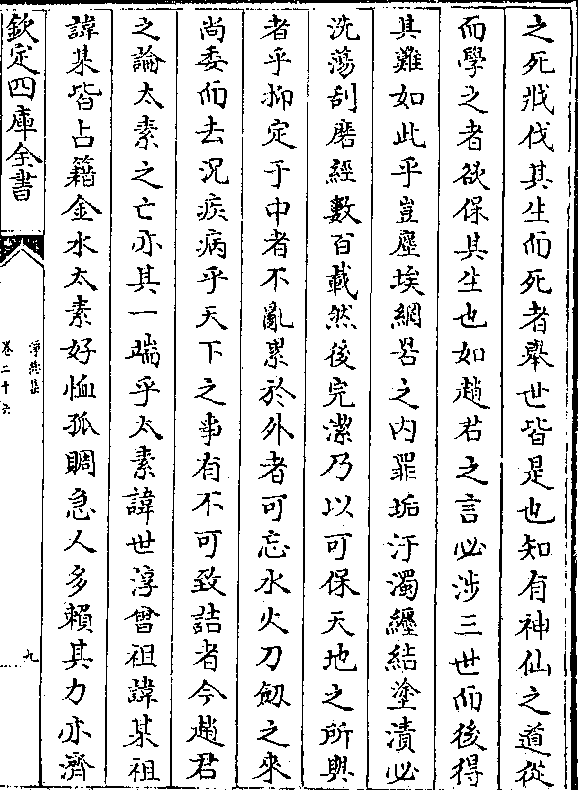 之死戕伐其生而死者舉世皆是也知有神仙之道從
而學之者欲保其生也如趙君之言必涉三世而後得
其難如此乎豈塵埃網罟之内罪垢汙濁纏結塗漬必
洗蕩刮磨經數百載然後完潔乃以可保天地之所與
者乎抑定于中者不亂累於外者可忘水火刀劒之來
尚委而去况疾病乎天下之事有不可致詰者今趙君
之論太素之亡亦其一端乎太素諱世淳曾祖諱某祖
諱某皆占籍金水太素好恤孤賙急人多賴其力亦濟
欽定四庫全書
淨德集
卷二十六
九